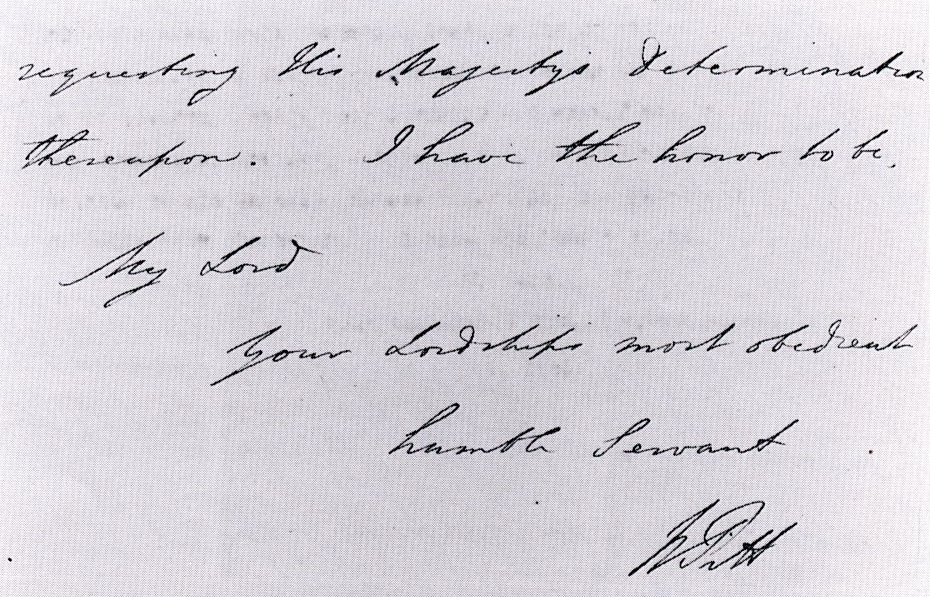 requesting His Majestys Determination
thereupon. I have the honor to be,
My Lord
Your Lordships most obedient
humble Servant
W Pitt